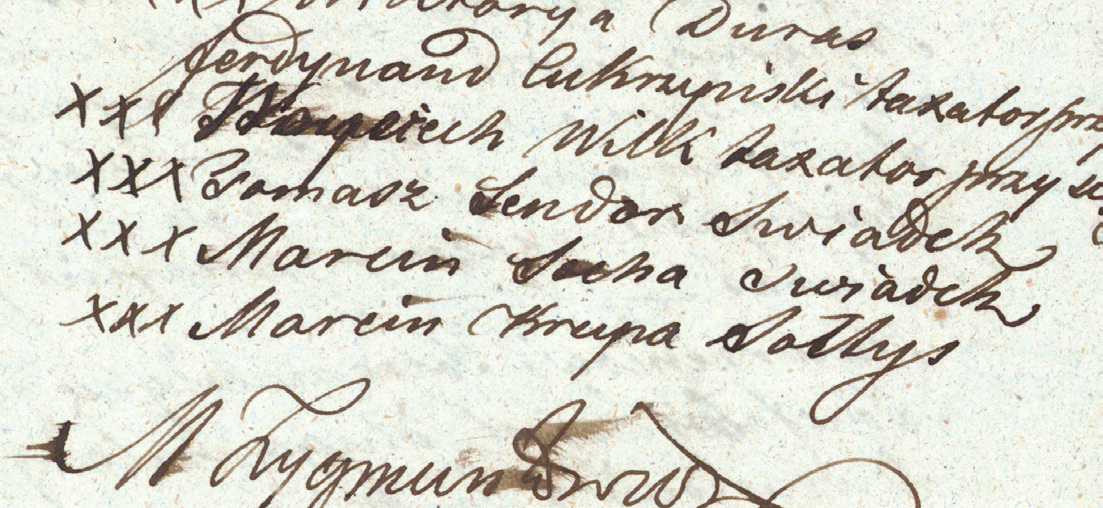 xxx Duras
ferdynand Cukrzyński taxator
xxx Woyciech Wilk taxator przy
xxx Tomasz Sendor Swiadek
xxx Marcin Socha Swiadek
xxx Marcin Krupa Sołtys
M Zygmuntowicz